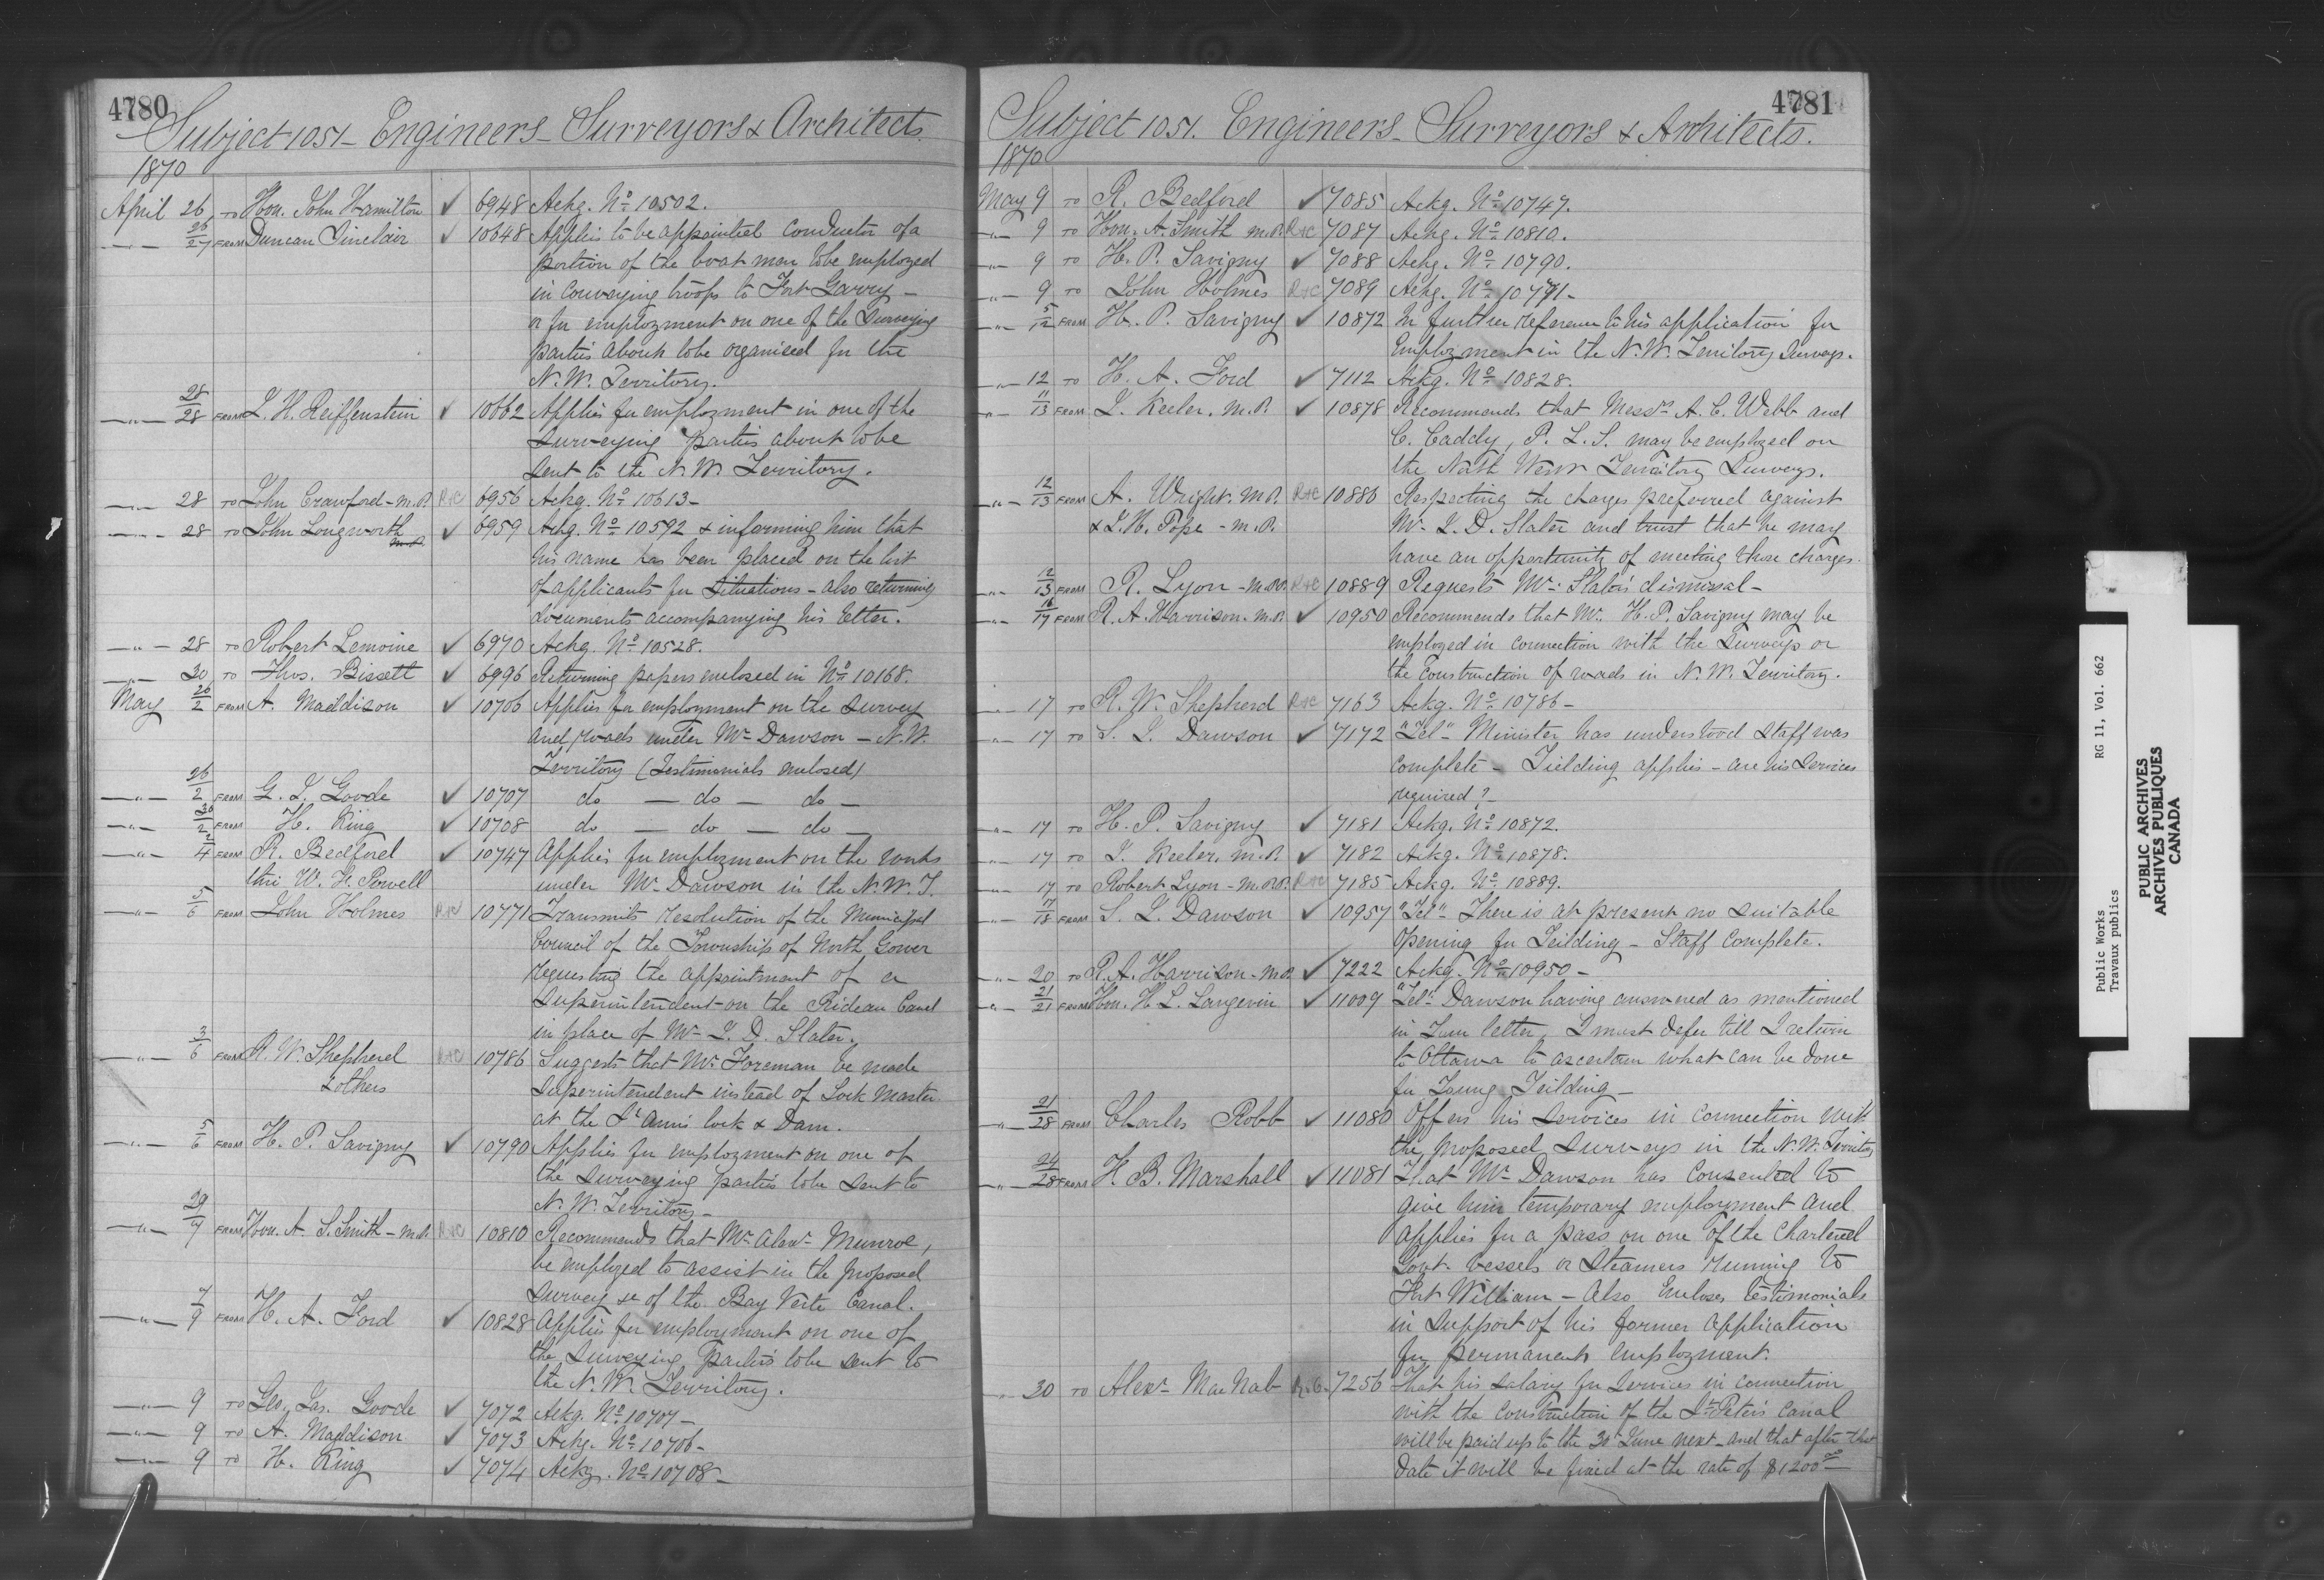 4780
Subject 1051 - Engineers - Surveyors & Architects.
1870
April 26 To Hon. John Hamilton ✓ 6948 Ackg. No 10502.
-"- 26/27 FROM Duncan Sinclair ✓ 10648 Applies to be appointed conductor of a
portion of the boat men to be employed
in conveying troops to Fort Garry -
or for employment on one of the Surveying
parties about to be organised for the
N.W. Territory.
-"- 28/28 FROM L. H. Reiffenstein ✓ 10662 Applies for employment in one of the
Surveying parties about to be
sent to the N.W. Territory.
28 To John Crawford - M.P. R&C 6956 Ackg. No 10613 -
-"- 28 To John Longworth ✓ 6959 Ackg. No 10592 & informing him that
his name has been placed on the list
of applicants for Situations - also returning
documents accompanying his letter.
-"- 28 To Robert Lemoine ✓ 6970 Ackg. No 10528.
-"- 30 To Thos. Bissett ✓ 6996 Returning papers enclosed in No 10168.
May 26/2 FROM A. Maddison ✓ 10706 Applies for employment on the survey
and roads under Mr Dawson - N.W.
Territory (Testimonials enclosed)
-"- 26/2 FROM G. J. Goode ✓ 10707 do - do - do -
-"- 30/2 FROM H. King ✓ 10708 do - do - do -
-"- 2/4 FROM R. Bedford ✓ 10747 Applies for employment on the works
thro W. F. Powell under Mr Dawson in the N.W.T.
-"- 5/6 FROM John Holmes R&C 10771 Transmits resolution of the Municipal
Council of the Township of North Gower
requesting the appointment of a
Superintendent on the Rideau Canal
in place of Mr J. D. Slater.
-"- 3/6 FROM R. W. Shepherd R&C 10786 Suggests that Mr Foreman be made
& others Superintendent instead of Lock Master
at the St Ann's lock & Dam.
-"- 5/6 FROM H. P. Savigny ✓ 10790 Applies for employment on one of
the Surveying parties to be sent to
N.W. Territory -
-"- 29/7 FROM Hon. A. J. Smith - M.P. R&C 10810 Recommends that Mr Alexr Munroe,
be employed to assist in the proposed
survey &c of the Bay Verte Canal.
-"- 7/9 FROM H. A. Ford ✓ 10828 Applies for employment on one of
the Surveying parties to be sent to
the N.W. Territory.
-"- 9 To Geo. Jas. Goode ✓ 7072 Ackg. No 10707 -
-"- 9 To A. Maddison ✓ 7073 Ackg. No 10706 -
-"- 9 To H. King ✓ 7074 Ackg. No 10708 -
4781
Subject 1051. Engineers - Surveyors & Architects.
1870
May 9 To R. Bedford ✓ 7085 Ackg. No 10747.
-"- 9 To Hon. A. Smith M.P. R&C 7087 Ackg. No 10810.
-"- 9 To H. P. Savigny ✓ 7088 Ackg. No 10790.
-"- 9 To John Holmes R&C 7089 Ackg. No 10771 -
-"- 5/12 FROM H. P. Savigny ✓ 10872 In further reference to his application for
Employment in the N.W. Territory Surveys.
-"- 12 To H. A. Ford ✓ 7112 Ackg. No 10828.
-"- 11/13 FROM J. Keeler, M.P. ✓ 10878 Recommends that Messrs A. C. Webb and
C. Caddy, P. L. S. may be employed on
the North West Territory Surveys.
-"- 12/13 FROM A. Wright. M.P. R&C 10886 Respecting the charges preferred against
& J. H. Pope - M.P. Mr J. D. Slater and trust that he may
have an opportunity of meeting those charges.
-"- 12/13 FROM R. Lyon - M.P.P. R&C 10889 Requests Mr Slater's dismissal -
-"- 16/17 FROM R. A. Harrison. M.P. ✓ 10950 Recommends that Mr H. P. Savigny may be
employed in connection with the Surveys or
the construction of roads in N.W. Territory.
17 To R. W. Shepherd R&C 7163 Ackg. No 10786 -
-"- 17 To S. J. Dawson ✓ 7172 "Tel" Minister has understood Staff was
complete - Feilding applies - are his services
required? -
-"- 17 To H. P. Savigny ✓ 7181 Ackg. No 10872.
-"- 17 To J. Keeler. M.P. ✓ 7182 Ackg. No 10878.
-"- 17 To Robert Lyon - M.P.P. R&C 7185 Ackg. No 10889.
-"- 17/18 FROM S. J. Dawson ✓ 10957 "Tel" There is at present no suitable
opening for Feilding - Staff complete.
-"- 20 To R. A. Harrison - M.P. ✓ 7222 Ackg. No 10950 -
-"- 21/21 FROM Hon. H. L. Langevin ✓ 11009 "Tel" Dawson having answered as mentioned
in your letter, I must defer till I return
to Ottawa to ascertain what can be done
for Young Feilding -
-"- 21/28 FROM Charles Robb ✓ 11080 Offers his services in connection with
the proposed surveys in the N.W. Territory
-"- 24/28 FROM H. B. Marshall ✓ 11081 That Mr Dawson has consented to
give him temporary employment and
applies for a pass on one of the Chartered
Govt vessels or Steamers running to
Fort William - Also Encloses testimonials
in support of his former application
for permanent employment.
30 To Alexr MacNab R.C. 7256 That his salary for services in connection
with the construction of the St Peter's Canal
will be paid up to the 30 June next - and that after that
date it will be fixed at the rate of $1200.00
Public Works RG 11, Vol. 662
Travaux publics
PUBLIC ARCHIVES
ARCHIVES PUBLIQUES
CANADA